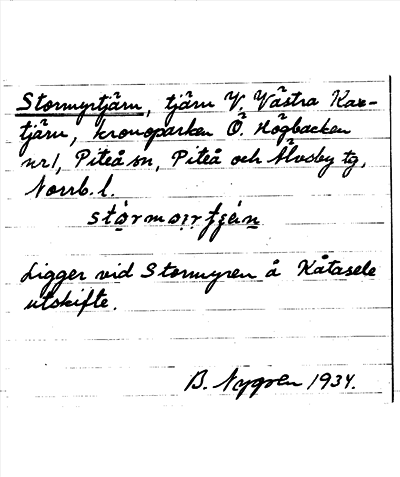 Stormyrtjärn, tjärn V. Västra Kax-
tjärn, kronoparken Ö. Högbacken
nr 1, Piteå sn, Piteå och Älvsby tg,
Norrb. l.
Ligger vid Stormyren å Kåtasele
utskifte.
B. Nygren 1934.